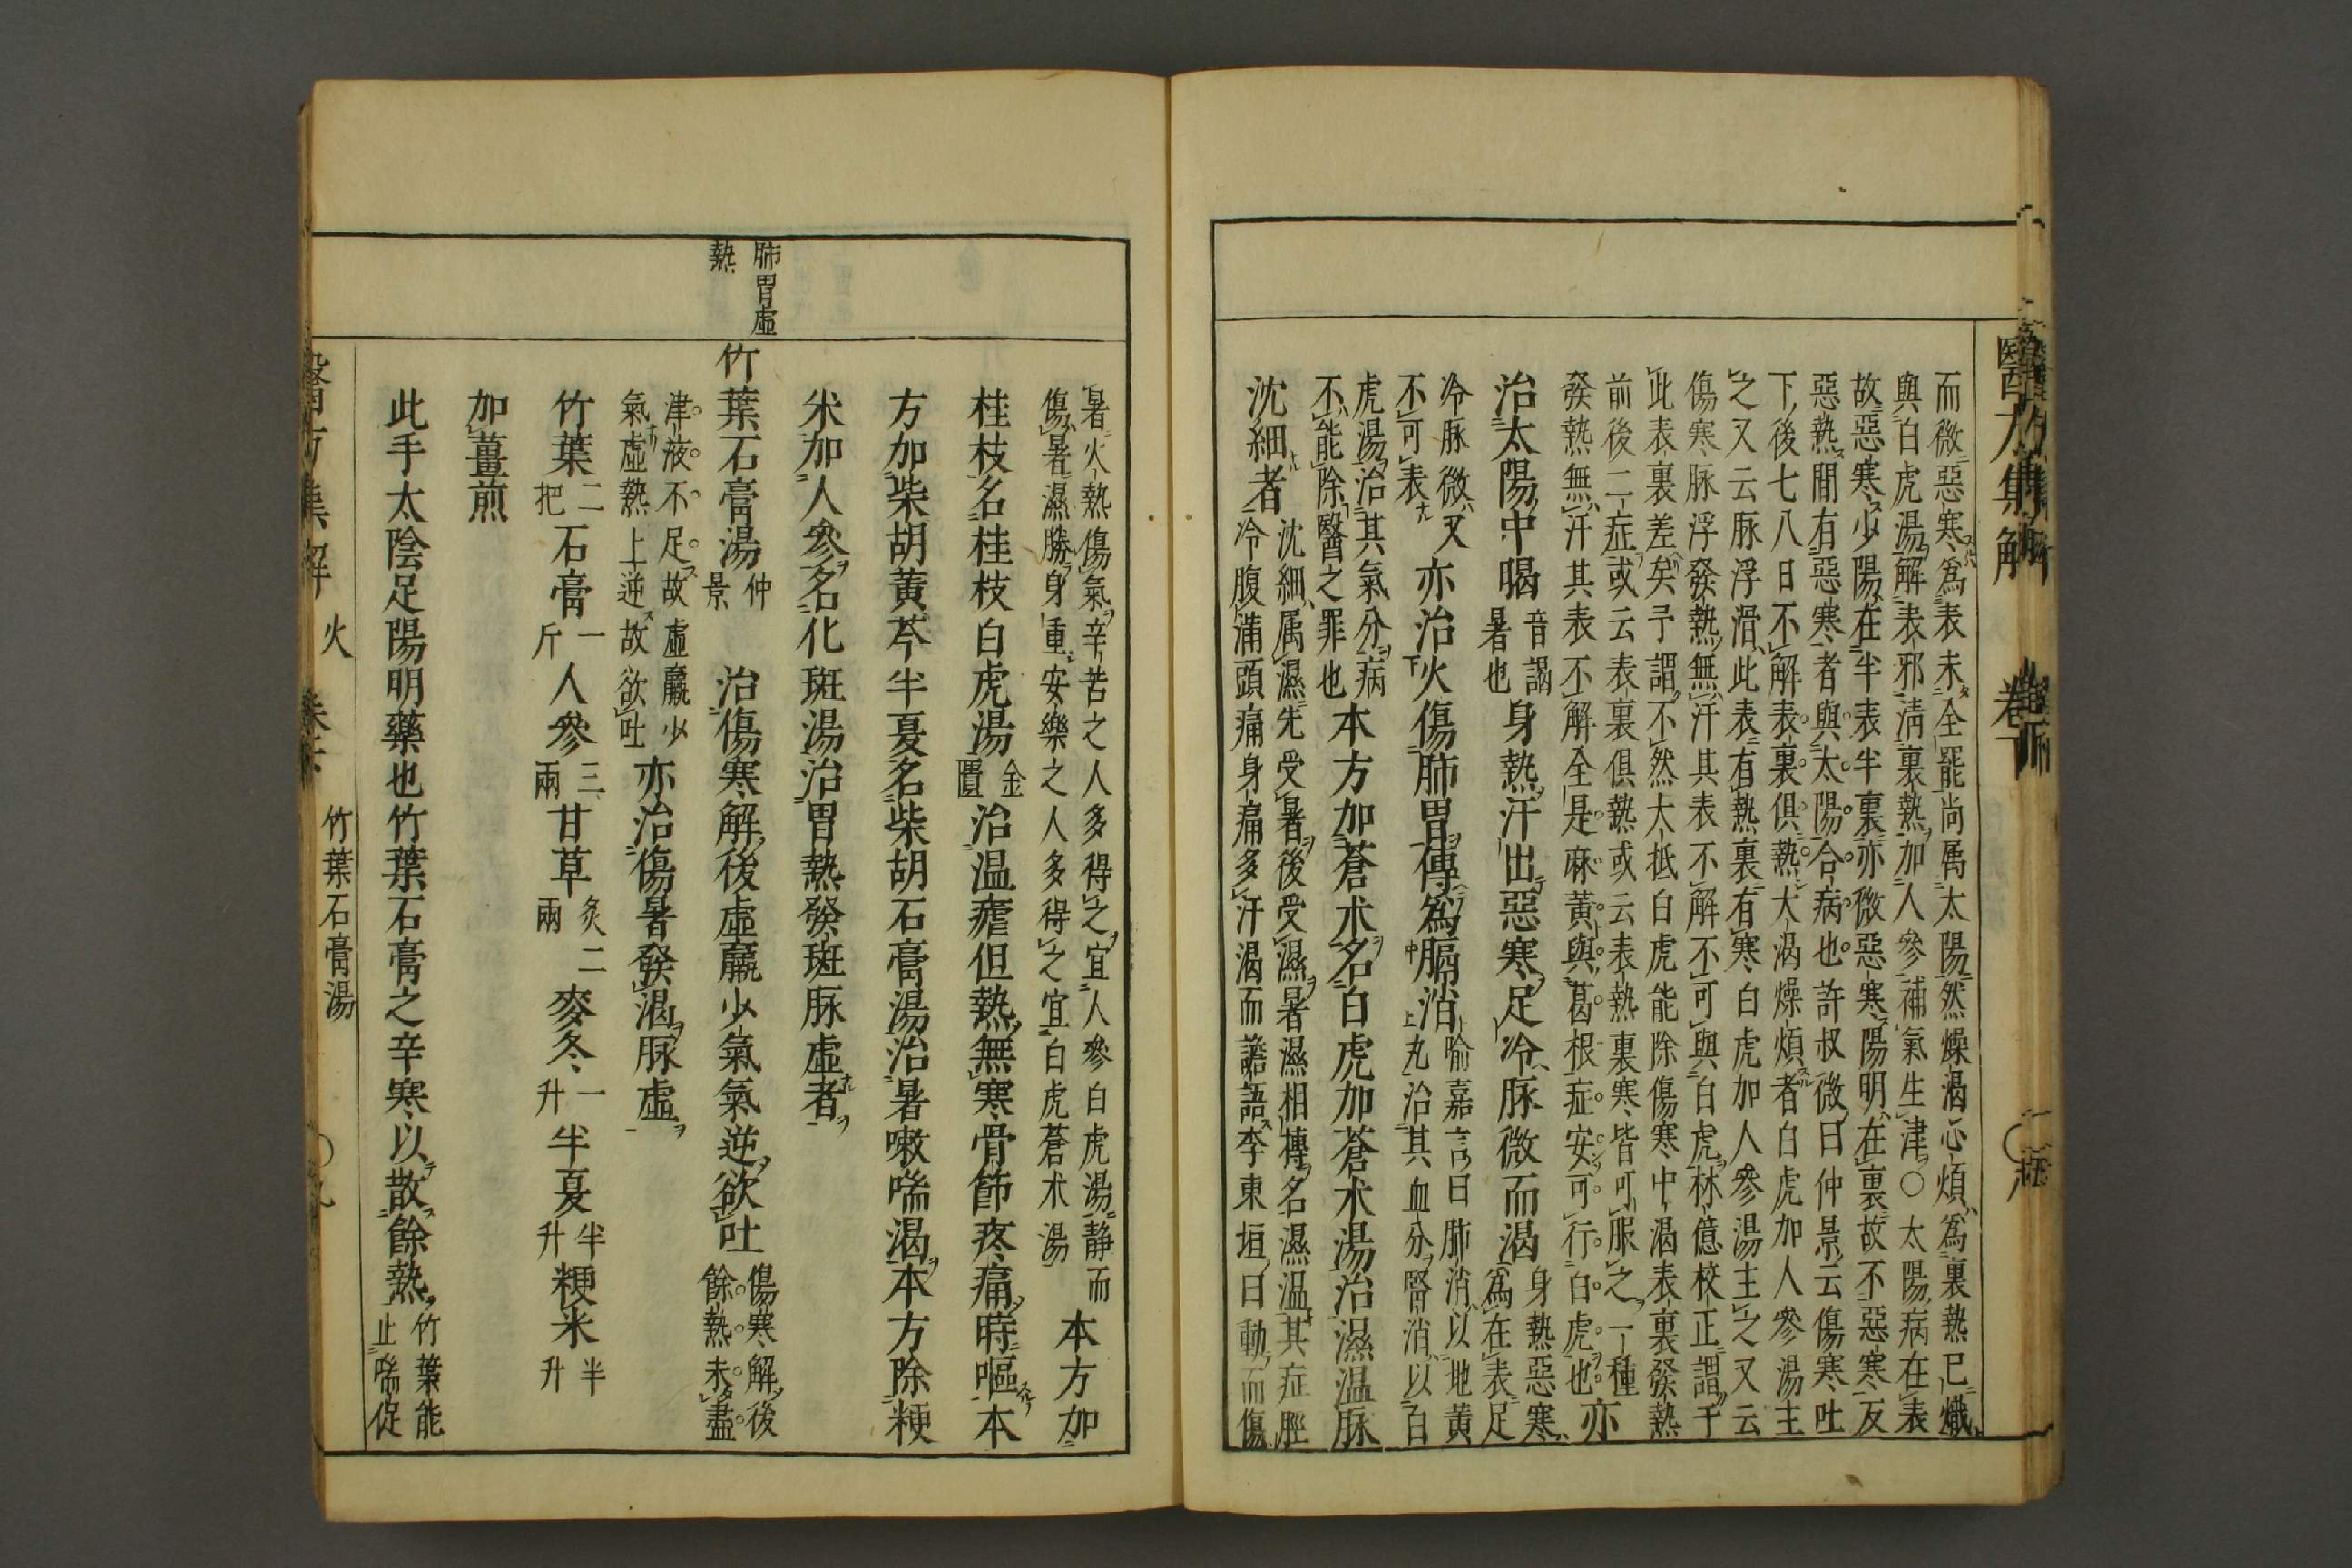 醫方集解
卷下
而微惡寒爲表未全罷尚属太陽然燥渴心煩爲裏熱已熾
與白虎湯解表邪淸裏熱加人參補氣生津○太陽病在表
故惡寒少陽在半表半裏亦微惡寒陽明在裏故不惡寒反
惡熱間有惡寒者與太陽合病也許叔微曰仲景云傷寒吐
下後七八日不解表裏俱熱大渴燥煩者白虎加人參湯主
之又云脉浮滑此表有熱裏有寒白虎加人參湯主之又云
傷寒脉浮發熱無汗其表不解不可與白虎林億校正謂于
此表裏差矣予謂不然大抵白虎能除傷寒中渴表裏發熱
前後二症或云表裏俱熱或云表熱裏寒皆可服之一種
發熱無汗其表不解全是麻黄與葛根症安可行白虎也亦
治太陽中暍音謁暑也身熱汗出惡寒足冷脉微而渴身熱惡寒爲在表足
冷脉微又不可表亦治火傷肺胃傳爲膈消喻嘉言曰肺消以地黄丸治其血分腎消以白
虎湯治其氣分病不能除醫之罪也本方加蒼术名白虎加蒼术湯治濕温脉
沈細者沈細属濕先受暑後受濕暑濕相搏名濕温其症脛冷腹滿頭痛身痛多汗渴而譫語李東垣曰動而傷
暑火熱傷氣辛苦之人多得之宜人參白虎湯靜而傷暑濕勝身重安樂之人多得之宜白虎蒼术湯本方加
桂枝名桂枝白虎湯金匱治温瘧但熱無寒骨節疼痛時嘔本
方加柴胡黄芩半夏名柴胡石膏湯治暑嗽喘渴本方除粳
米加人參名化斑湯治胃熱發斑脉虚者
肺胃虛熱
竹葉石膏湯仲景治傷寒解後虛羸少氣氣逆欲吐傷寒解後餘熱未盡
津液不足故虛羸少氣虛熱上逆故欲吐亦治傷暑發渴脉虛
竹葉二把石膏一斤人參三兩甘草炙二兩麥冬一升半夏半升粳米半升
加薑煎
此手太陰足陽明藥也竹葉石膏之辛寒以散餘熱竹葉能止喘促
火
竹葉石膏湯